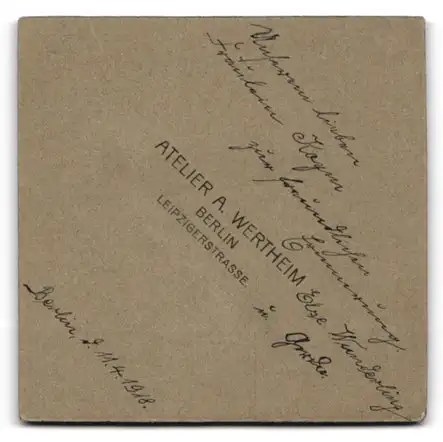 Unserm lieben
Fräulein Hagen
zur freundlichen
Erinnerung
Else Wunderling
u. Grete.
ATELIER A. WERTHEIM
BERLIN
LEIPZIGERSTRASSE.
Berlin d. 11.4.1918.